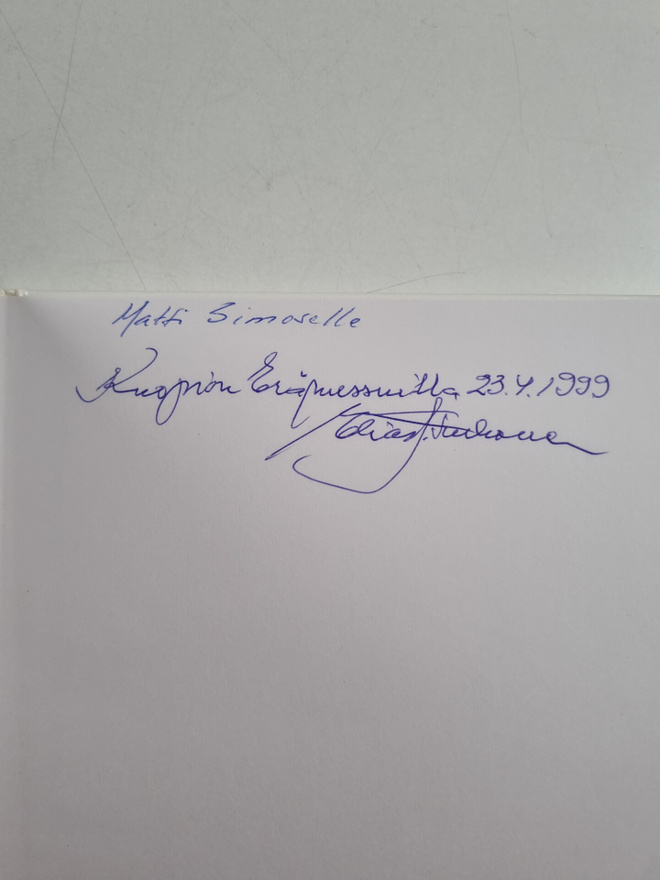 Matti Simoselle
Kuopion Erämessuilla 23.4.1999